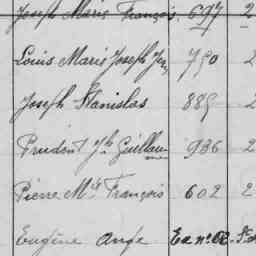 Joseph Marie François, 697 2
Louis Marie Joseph 790 2
Joseph Stanislas 889 2
Prudent Jh Guillau 936 2
Pierre Mie François 602 2
Eugène Ange Ex nº 62